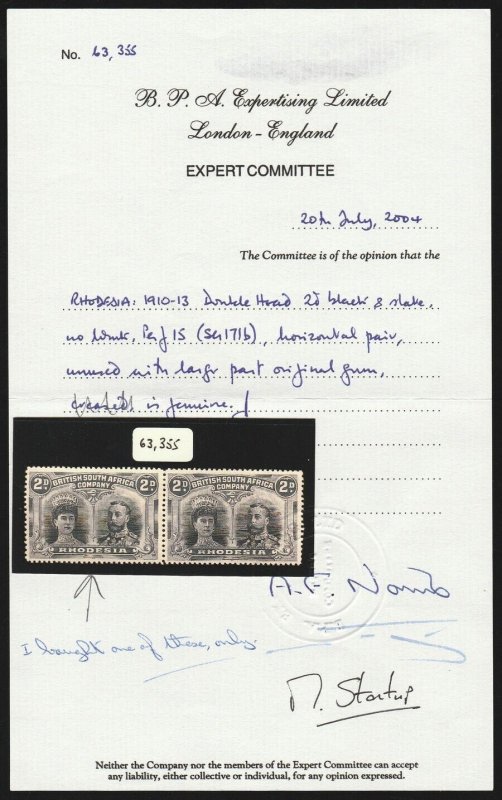 No. 63,355
B. P. A. Expertising Limited
London - England
EXPERT COMMITTEE
20th July, 2004
The Committee is of the opinion that the
RHODESIA: 1910-13 Double Head 2d black & slate,
no wmk, Perf 15 (SG171b), horizontal pair,
unused with large part original gum,
is genuine.
63,355
2D BRITISH SOUTH AFRICA COMPANY 2D 2D BRITISH SOUTH AFRICA COMPANY 2D
RHODESIA RHODESIA
I bought one of these, only.
M. Startup
Neither the Company nor the members of the Expert Committee can accept
any liability, either collective or individual, for any opinion expressed.